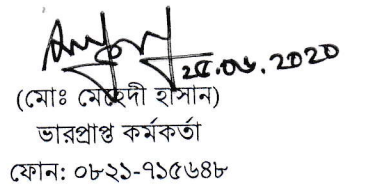 ২৫.০৬.2020
(মোঃ মেহেদী হাসান)
ভারপ্রাপ্ত কর্মকর্তা
ফোন: ০৮২১-৭১৫৬৪৮